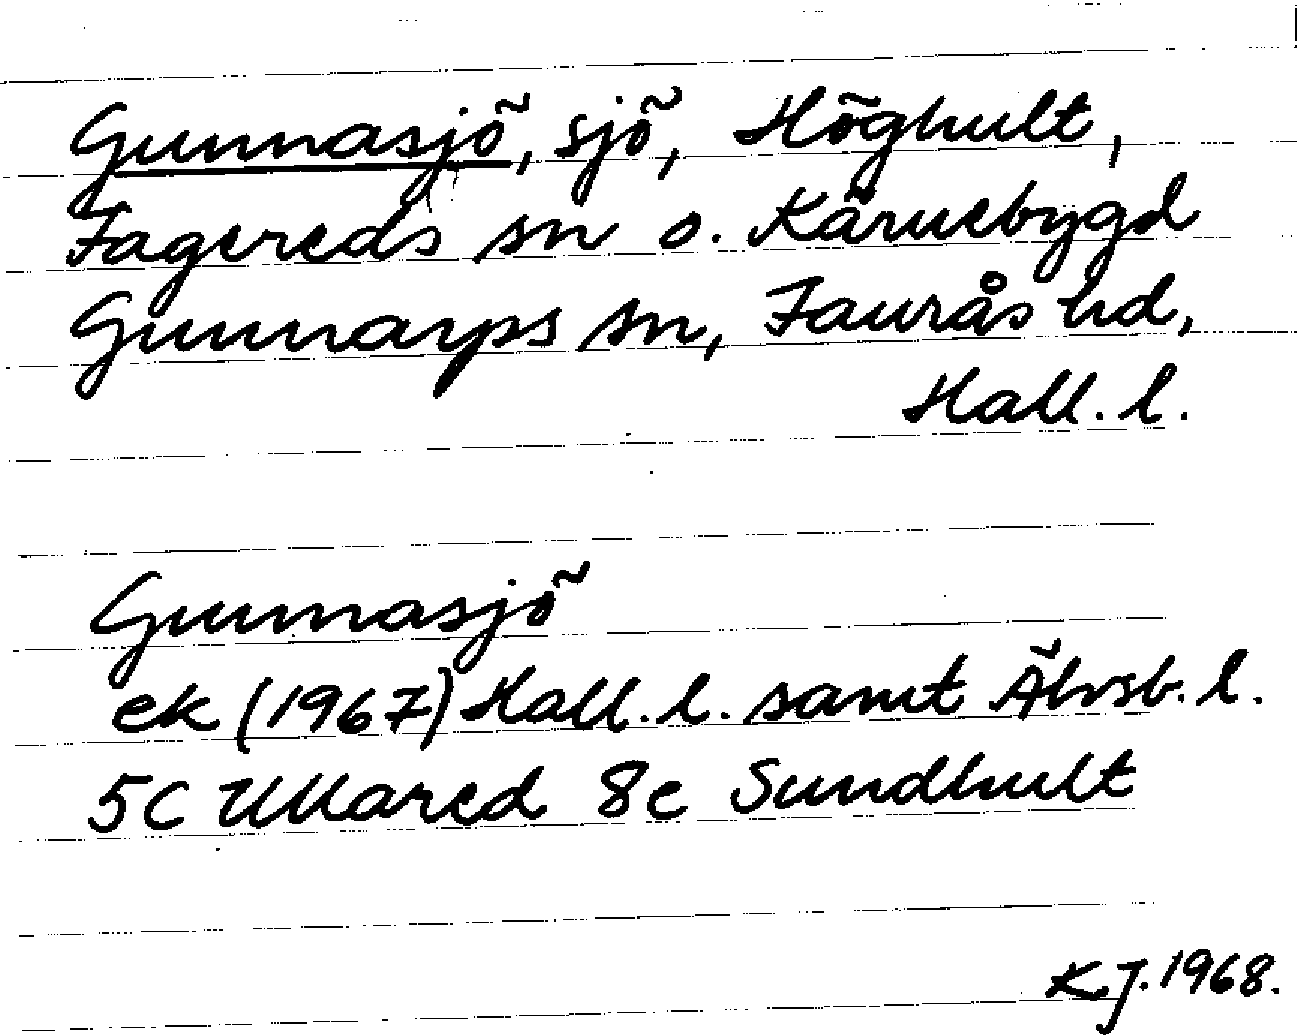 Gunnasjö, sjö, Höghult,
Fagereds sn o. Kärnebygd
Gunnarps sn, Faurås hd,
Hall. l.
Gunnasjö
ek (1967) Hall. l. samt Älvsb. l.
5C Ullared 8e Sundhult
K.J. 1968.